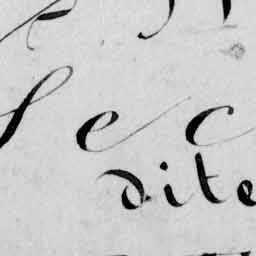 Sec
dite